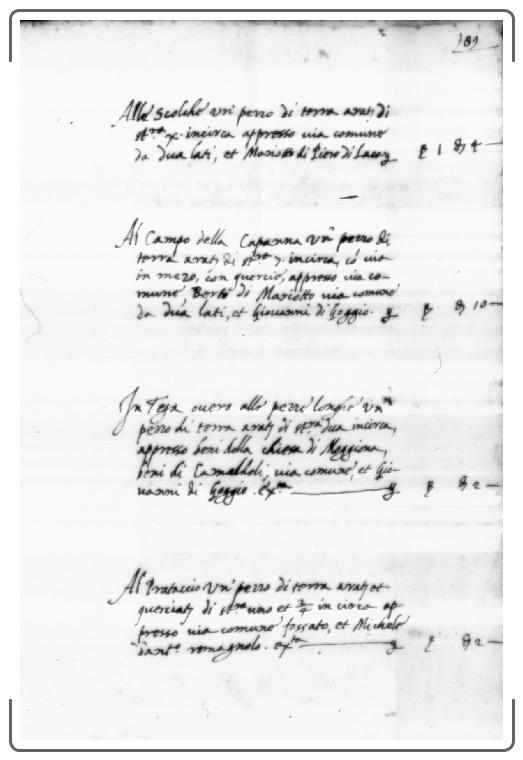 181
Alle Scolche un pezzo di terra arat: di
st.ra x. incirca appresso via comune
da dua lati, et Mariotto di Piero di 1 4
Al Campo della Capanna un pezzo di
terra arat: di st.re 7. incirca, co via
in mezo, con quercie, appresso via co-
mune Berto di Mariotto via comune
da dua lati, et Giovanni di Goggio. 10
In Teja overo alle pezze longhe un
pezzo di terra arat: di st.ra dua incirca,
appresso beni della chiesa di Moggiona,
beni di Camaldoli, via comune, et Gio-
vanni di Goggio. 2
Al Prataccio un pezzo di terra arat: et
querciat: di st.ra uno et incirca ap
presso via comune fossato, et Michele
romagnolo. 2